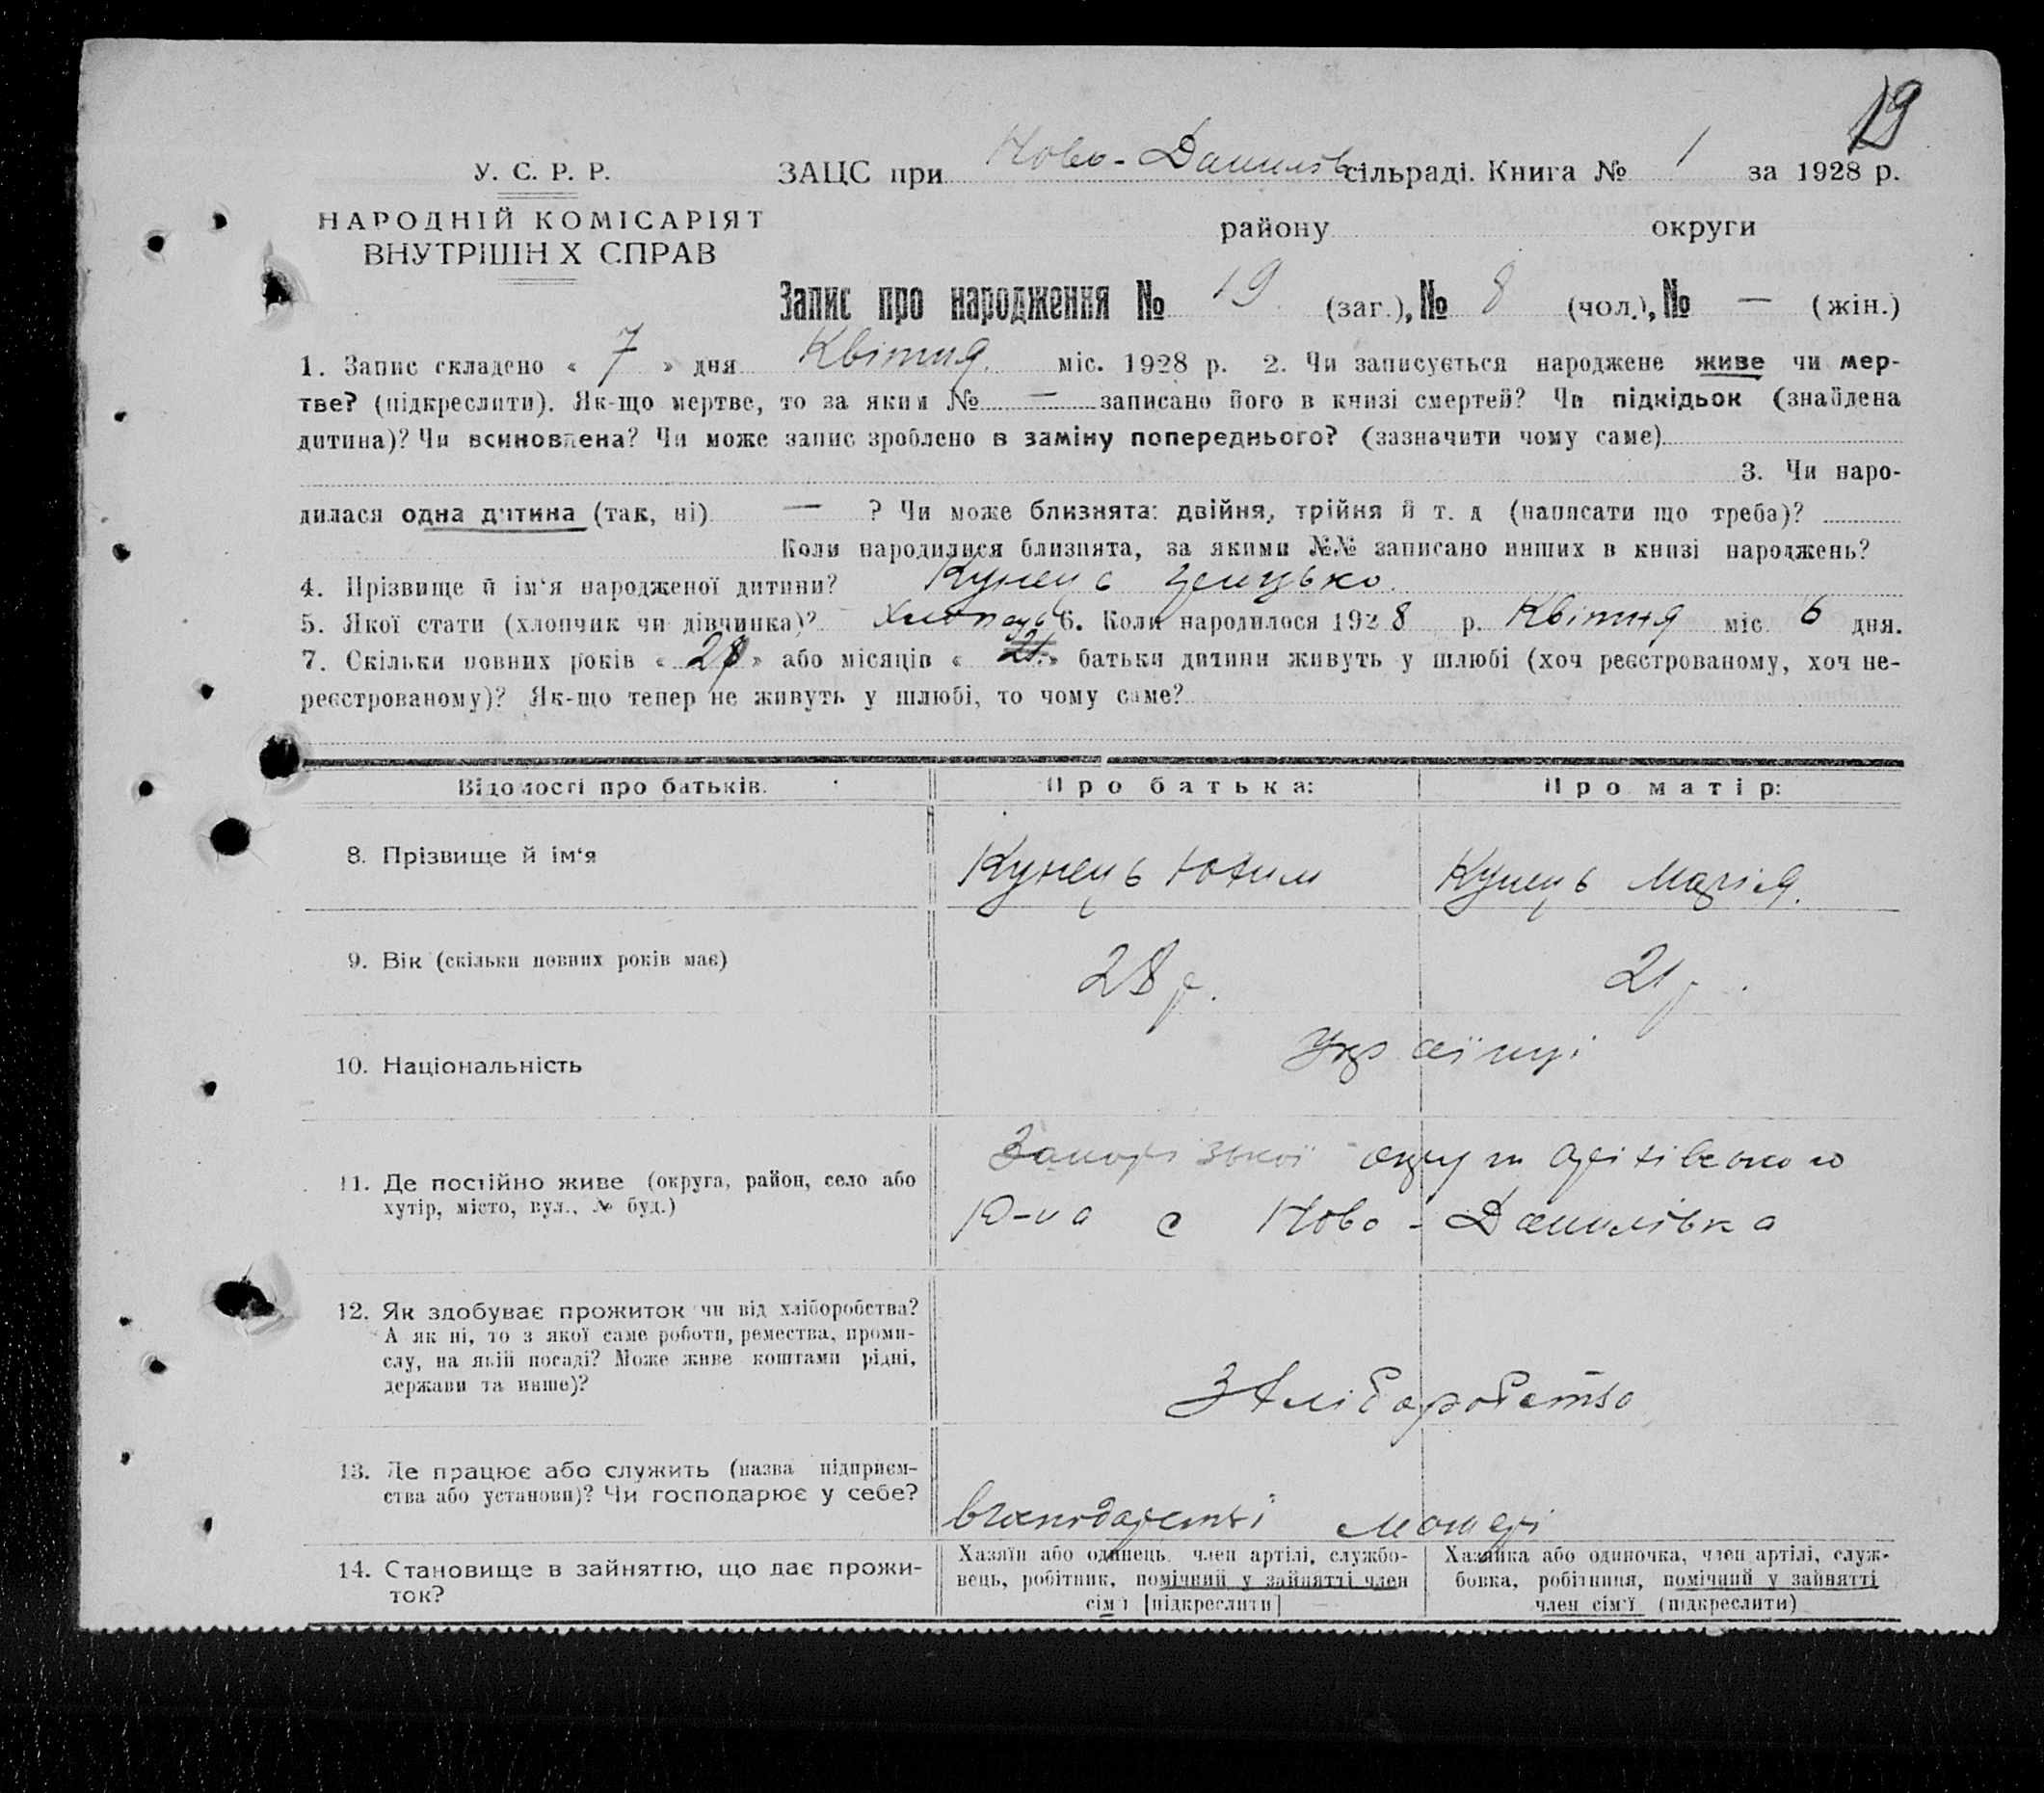 19
У. С. Р. Р.
НАРОДНІЙ КОМІСАРІЯТ
ВНУТРІШН Х СПРАВ
ЗАЦС при Ново-Данилів сільраді. Книга № 1 за 1928 р.
району округи
Запис про народження № 19 (заг.), № 8 (чол.), № — (жін.)
1. Запис складено « 7 » дня Квітня міс. 1928 р. 2. Чи записується народжене живе чи мер-
тве? (підкреслити). Як-що мертве, то за яким № — записано його в книзі смертей? Чи підкідьок (знайдена
дитина)? Чи всиновлена? Чи може запис зроблено в заміну попереднього? (зазначити чому саме)
3. Чи наро-
дилася одна дитина (так, ні) — ? Чи може близнята: двійня, трійня й т. д (написати що треба)?
Коли народилися близнята, за якими №№ записано инших в книзі народжень?
4. Прізвище й ім‘я народженої дитини? Кунець
5. Якої стати (хлопчик чи дівчинка)? Хлопець 6. Коли народилося 1928 р. Квітня міс. 6 дня.
7. Скільки повних років « » або місяців « » батьки дитини живуть у шлюбі (хоч реєстрованому, хоч не-
реєстрованому)? Як-що тепер не живуть у шлюбі, то чому саме?
Відомості про батьків. Про батька: Про матір:
8. Прізвище й ім‘я Кунець Юхим Кунець Марія.
9. Вік (скільки повних років має) 28 р. 21 р.
10. Національність Українці
11. Де постійно живе (округа, район, село або
хутір, місто, вул., № буд.)
Запорізької округи Оріхівського
Р-на с Ново-Данилівка
12. Як здобуває прожиток чи від хліборобства?
А як ні, то з якої саме роботи, ремества, проми-
слу, на якій посаді? Може живе коштами рідні,
держави та инше)?
З Хліборобства
13. Де працює або служить (назва підприєм-
ства або установи)? Чи господарює у себе?
в господарстві матері
14. Становище в зайняттю, що дає прожи-
ток?
Хазяїн або одинець, член артілі, службо-
вець, робітник, помічний у зайнятті член
сім'ї [підкреслити]
Хазяйка або одиночка, член артілі, служ-
бовка, робітниця, помічний у зайнятті
член сім'ї (підкреслити)